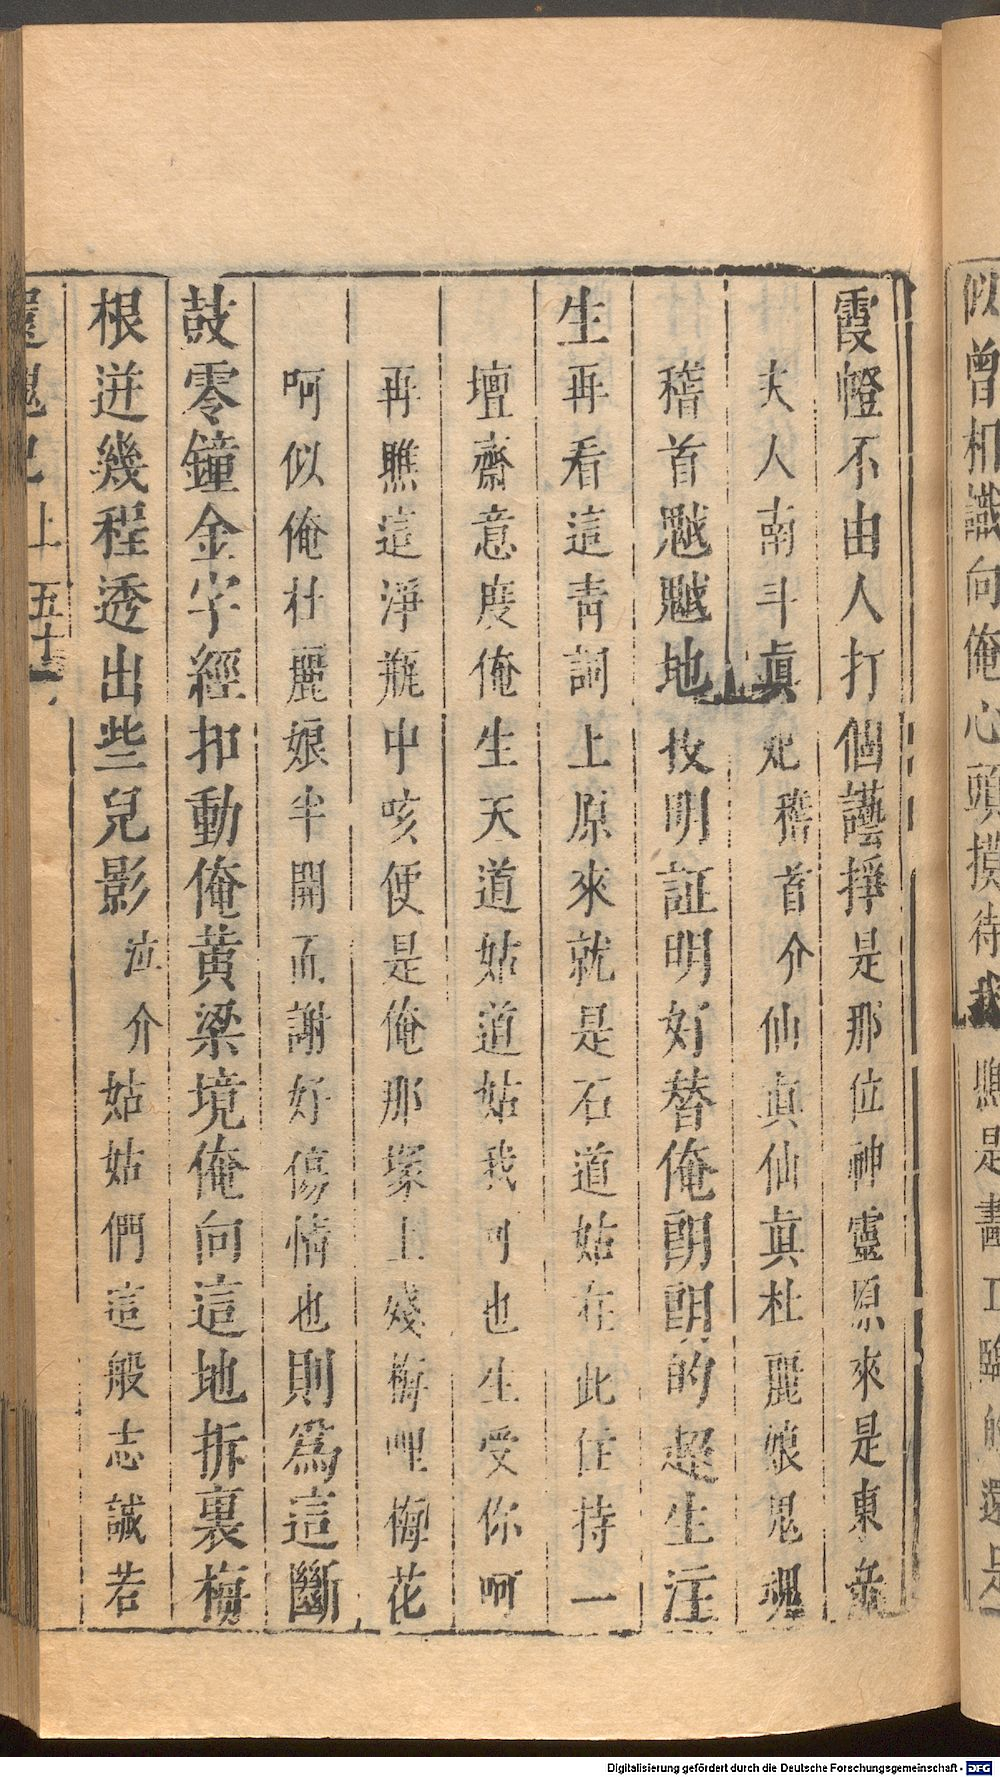 似曾相識向俺心頭摸待我瞧是畫工臨的還是
霞幢不由人打個讔掙是那位神靈原來是東嶽
夫人南斗真妃稽首介仙真仙真杜麗娘鬼魂
稽首魆魆地投明証明好替俺朗朗的超生注
生再看這青詞上原來就是石道姑在此住持一
壇齋意度俺生天道姑道姑我可也生受你呵
再瞧這淨瓶中咳便是俺那塚上殘梅哩梅花
呵似俺杜麗娘半開而謝好傷情也則爲這斷
鼓零鐘金字經扣動俺黃粱境俺向這地拆裏梅
根迸幾程透出些兒影泣介姑姑們這般志誠若
還魂記上五十
Digitalisierung gefördert durch die Deutsche Forschungsgemeinschaft - DFG